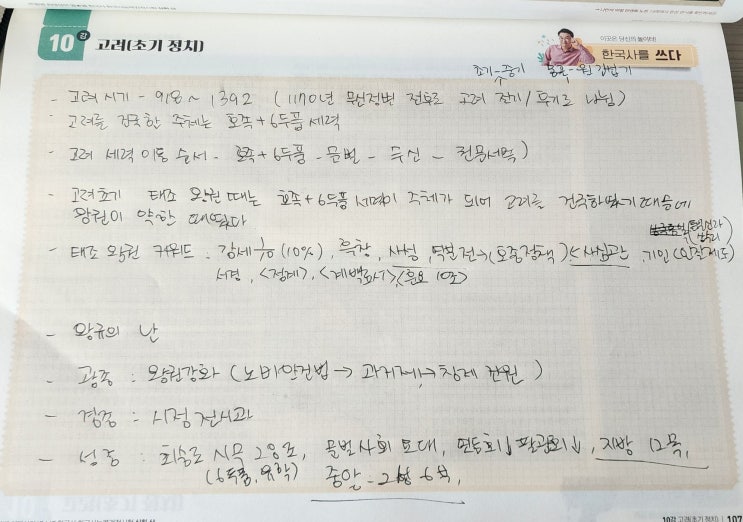 10강 고려(초기 정치)
이곳은 당신의 놀이터!
한국사를 쓰다
초기-중기 무신-원 간섭기
- 고려 시기 - 918 ~ 1392 (1170년 무신정변 전후로 고려 전기/후기로 나뉨)
- 고려를 건국한 주체는 호족+6두품 세력
- 고려 세력 이동 순서 - 호족+6두품 - 문벌 - 무신 - 권문세족)
- 고려초기 태조 왕건 때는 호족+6두품 세력이 주체가 되어 고려를 건국하였기 때문에
왕권이 약한 때였다
- 태조 왕건 키워드 : 감세 1/10 (10%), 흑창, 사성, 역분전→(호족정책)<사심관, 기인(인질제도)
서경, <정계>, <계백료서>, <훈요 10조>
- 왕규의 난
- 광종 : 왕권강화 (노비안건법 → 과거제, → 칭제 건원)
- 경종 : 시정 전시과
- 성종 : 최승로 시무 28조, 문벌사회 토대, 연등회↓ 팔관회↓, 지방 12목,
(6두품, 유학) 중앙 - 2성 6부,
10강 고려(초기 정치) | 107